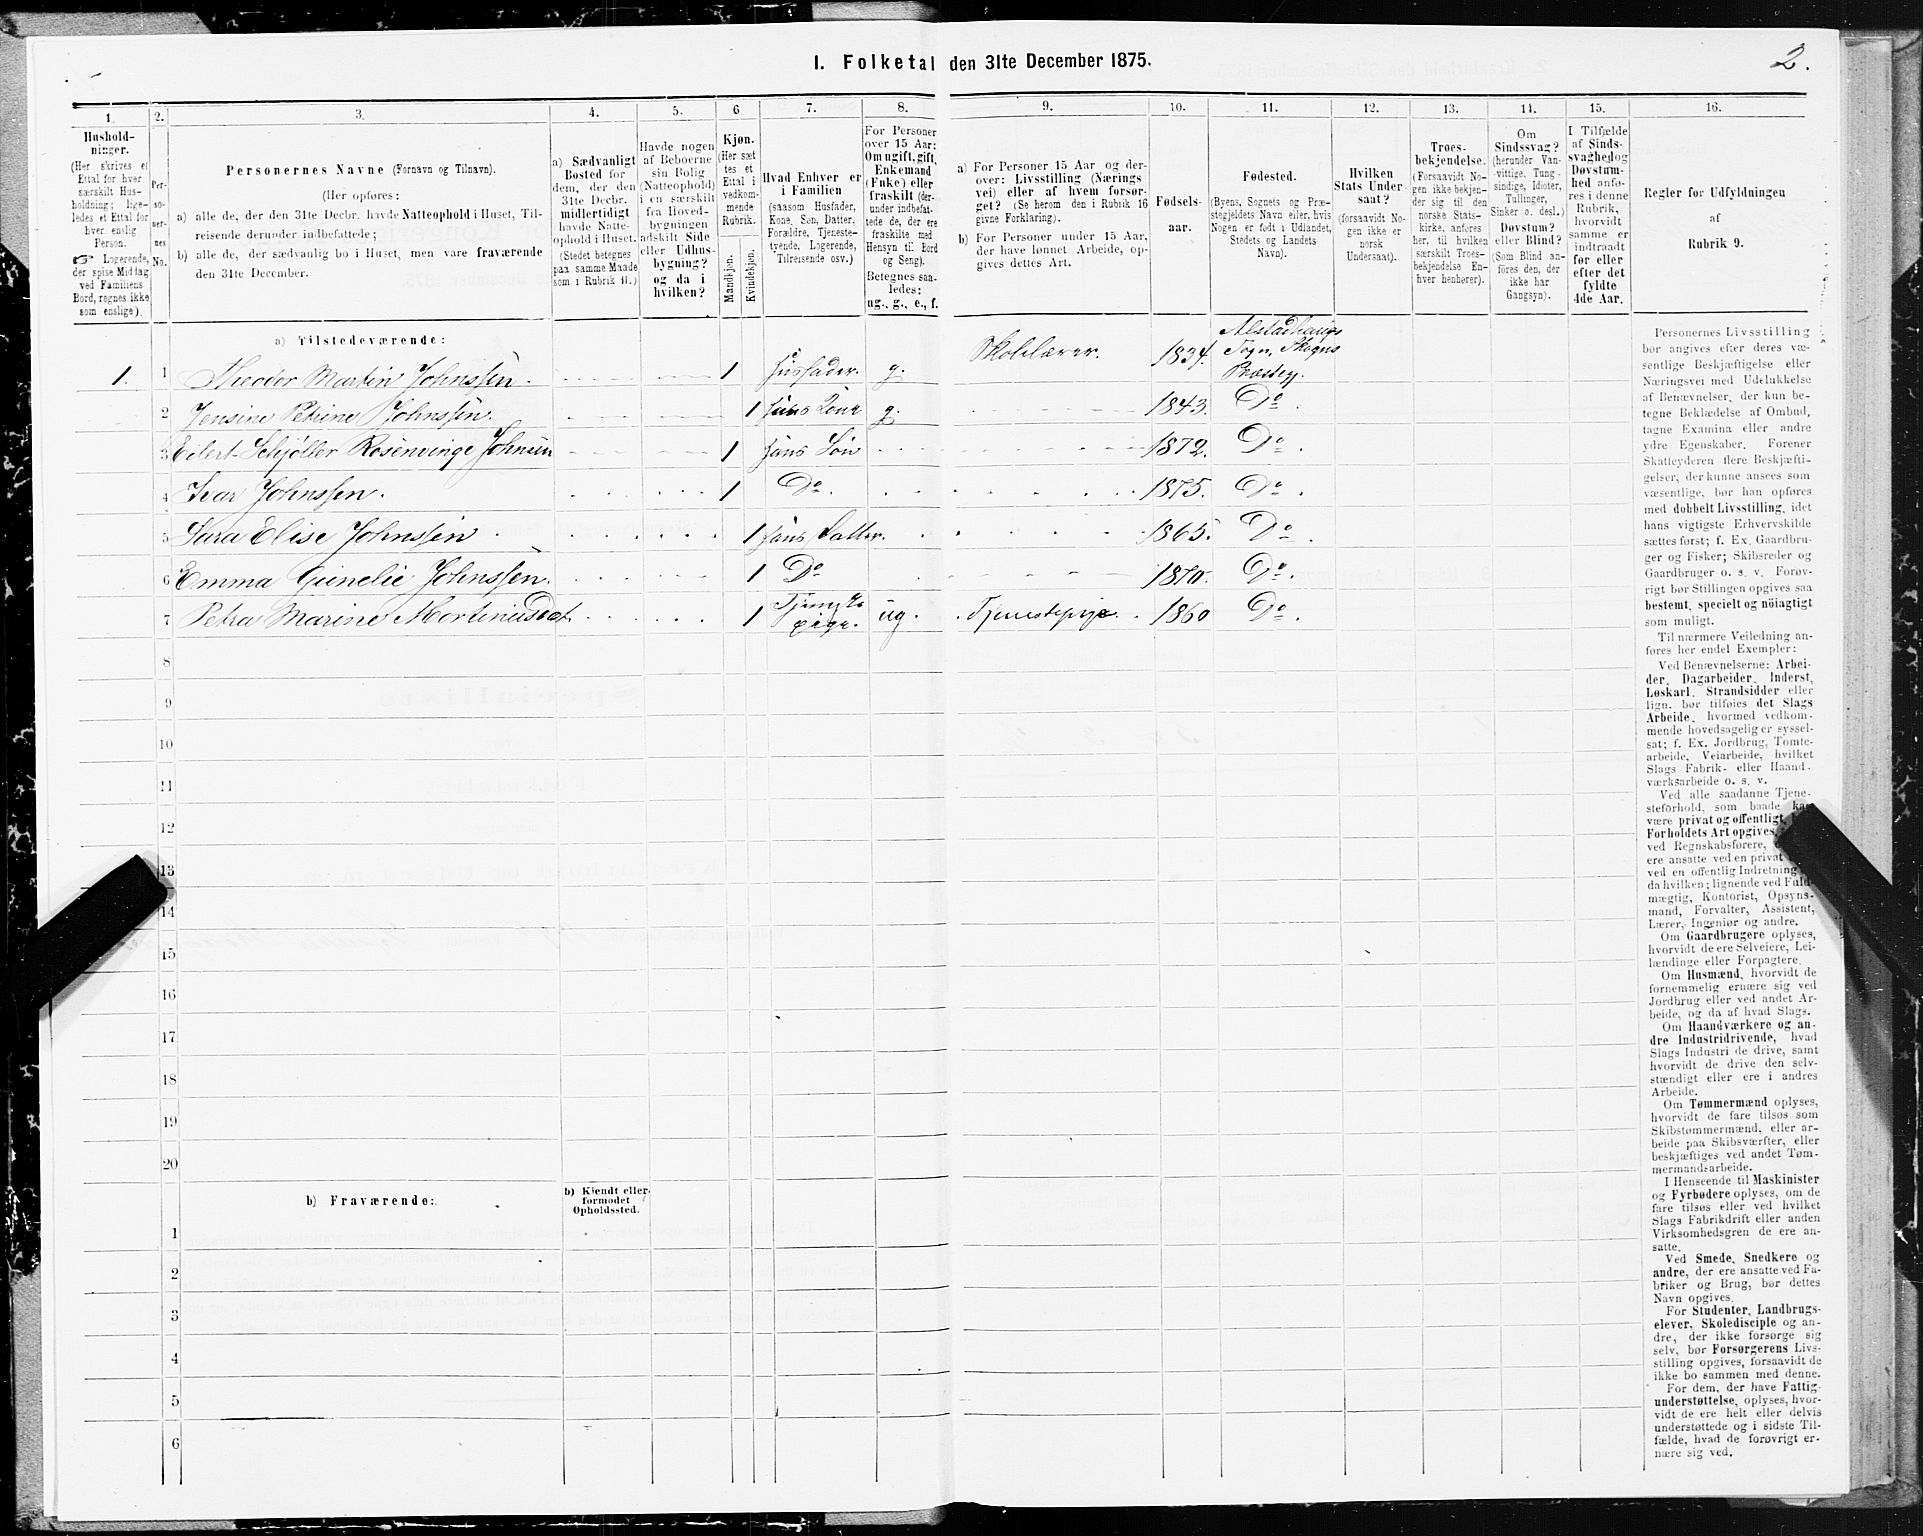 I. Folketal den 31te December 1875.
2.
1.
2.
3.
4.
5.
6
7.
8.
9.
10.
11.
12.
13.
14.
15.
16.
Hushold-
ninger.
(Her skrives et
Ettal for hver
særskilt Hus-
holdning; lige-
ledes et Ettal for
hver enslig
Person.
☞ Logerende,
der spise Middag
ved Familiens
Bord, regnes ikke
som enslige).
Per-
so-
ner-
nes
No.
Personernes Navne (Fornavn og Tilnavn).
(Her opføres:
a) alle de, der den 31te Decbr. havde Natteophold i Huset, Til-
reisende derunder indbefattede;
b) alle de, der sædvanlig bo i Huset, men vare fraværende
den 31te December.
a) Sædvanligt
Bosted for
dem, der den
31te Decbr.
midlertidigt
havde Natte-
ophold i Huset.
(Stedet betegnes
paa samme Maade
som i Rubrik 11.)
Havde nogen
af Beboerne
sin Bolig
(Natteophold)
i en særskilt
fra Hoved-
bygningen
adskilt Side
eller Udhus-
bygning?
og da i
hvilken?
Kjøn.
(Her sæt
tes et
Ettal i
vedkom-
mende
Rubrik.
Mandkjøn.
Kvindekjøn.
Hvad Enhver er
i Familien
(saasom Husfader,
Kone, Søn, Datter,
Forældre, Tjeneste-
tyende, Logerende,
Tilreisende osv.)
For Personer
over 15 Aar:
Om ugift, gift,
Enkemand
(Enke) eller
fraskilt (der-
under indbefat-
tede de, der ere
fraskilte med
Hensyn til Bord
og Seng).
Betegnes saa-
ledes:
ug., g., e., f.
a) For Personer 15 Aar og der-
over: Livsstilling (Nærings
vei) eller af hvem forsør-
get? (Se herom den i Rubrik 16
givne Forklaring).
b) For Personer under 15 Aar,
der have lønnet Arbeide, op-
gives dettes Art.
Fødsels-
aar.
Fødested.
(Byens, Sognets og Præ-
stegjeldets Navn eller, hvis
Nogen er født i Udlandet,
Stedets og Landets
Navn).
Hvilken
Stats Under-
saat?
(forsaavidt No-
gen ikke er
norsk
Undersaat).
Troes-
bekjendelse.
(Forsaavidt No-
gen ikke bekjen-
der sig til den
norske Stats-
kirke, anføres
her, til hvilken
særskilt Troes-
bekjendelse En-
hver henhører).
Om
Sindssvag?
(herunder Van-
vittige, Tung-
sindige, Idioter,
Tullinger,
Sinker o. desl.)
Døvstum?
eller Blind?
(Som Blind an-
føres den, der
ikke har
Gangsyn).
I Tilfælde
af Sinds-
svaghed og
Døvstum-
hed anfø-
res i denne
Rubrik,
hvorvidt
samme er
indtraadt
før eller
efter det
fyldte
4de Aar.
Regler for Udfyldningen
af
Rubrik 9.
a) Tilstedeværende:
1. 1 Theodor Martin Johnssen. 1 Husfader. g. Skolelærer. 1834. Alstadhaugs Sogn, Skogns Præsteg.
2 Jensine Petrine Johnssen. 1 Hans Kone g. 1843. Do.
3 Eilert Schjøller Rosenvinge Johnsen 1 Hans Søn 1872. Do.
4 Ivar Johnssen. 1 Do. 1875. Do.
5 Sara Elise Johnssen 1 Hans Datter. 1865. Do.
6 Emma Gunelie Johnssen. 1 Do 1870. Do.
7 Petra Marine Mortinusdat. 1 Tjenestepige. ug. Tjenestepige. 1860 Do.
8
9
10
11
12
13
14
15
16
17
18
19
20
b) Fraværende:
b) Kjendt eller
formodet
Opholdssted.
1
2
3
4
5
6
Personernes Livsstilling
bør angives efter deres væ-
sentlige Beskjæftigelse eller
Næringsvei med Udelukkelse
af Benævnelser, der kun be-
tegne Beklædelse af Ombud,
tagne Examina eller andre
ydre Egenskaber. Forener
Skatteyderen flere Beskjæfti-
gelser, der kunne ansees som
væsentlige, bør han opføres
med dobbelt Livsstilling, idet
hans vigtigste Erhvervskilde
sættes først; f. Ex. Gaardbru-
ger og Fisker; Skibsreder og
Gaardbruger o. s. v. Forøv-
rigt bør Stillingen opgives saa
bestemt, specielt og nöiagtigt
som muligt.
Til nærmere Veiledning an-
føres her endel Exempler:
Ved Benævnelserne: Arbei-
der, Dagarbeider, Inderst,
Løskarl, Strandsidder eller
lign. bør tilføies det Slags
Arbeide, hvormed vedkom-
mende hovedsagelig er syssel-
sat; f. Ex. Jordbrug, Tomte-
arbeide, Veiarbeide, hvilket
Slags Fabrik- eller Haand-
værksarbeide o. s. v.
Ved alle saadanne Tjene-
steforhold, som baade
være privat og offentligt,
Forholdets Art opgives,
ved Regnskabsførere,
ere ansatte ved en privat
ved en offentlig Indretning
da hvilken; lignende ved Fuld-
mægtig, Kontorist, Opsyns-
mand, Forvalter, Assistent,
Lærer, Ingeniør og andre.
Om Gaardbrugere oplyses,
hvorvidt de ere Selveiere, Lei-
lændinge eller Forpagtere.
Om Husmænd, hvorvidt de
fornemmelig ernære sig ved
Jordbrug eller ved andet Ar-
beide, og da af hvad Slags.
Om Haandværkere og an-
dre Industridrivende, hvad
Slags Industri de drive, samt
hvorvidt de drive den selv-
stændigt eller ere i andres
Arbeide.
Om Tømmermænd oplyses,
hvorvidt de fare tilsøs som
Skibstømmermænd, eller ar-
beide paa Skibsværfter, eller
beskjæftiges ved andet Tøm-
mermandsarbeide.
I Henseende til Maskinister
og Fyrbødere oplyses, om de
fare tilsøs eller ved hvilket
Slags Fabrikdrift eller anden
Virksomhedsgren de ere an-
satte.
Ved Smede, Snedkere og
andre, der ere ansatte ved Fa-
briker og Brug, bør dettes
Navn opgives.
For Studenter, Landbrugs-
elever, Skoledisciple og an-
dre, der ikke forsørge sig
selv, bør Forsørgerens Livs-
stilling opgives, forsaavidt de
ikke bo sammen med denne.
For dem, der have Fattig-
understøttelse, oplyses, hvor-
vidt de ere helt eller delvis
understøttede og i sidste Til-
fælde, hvad de forøvrigt er-
nære sig ved.